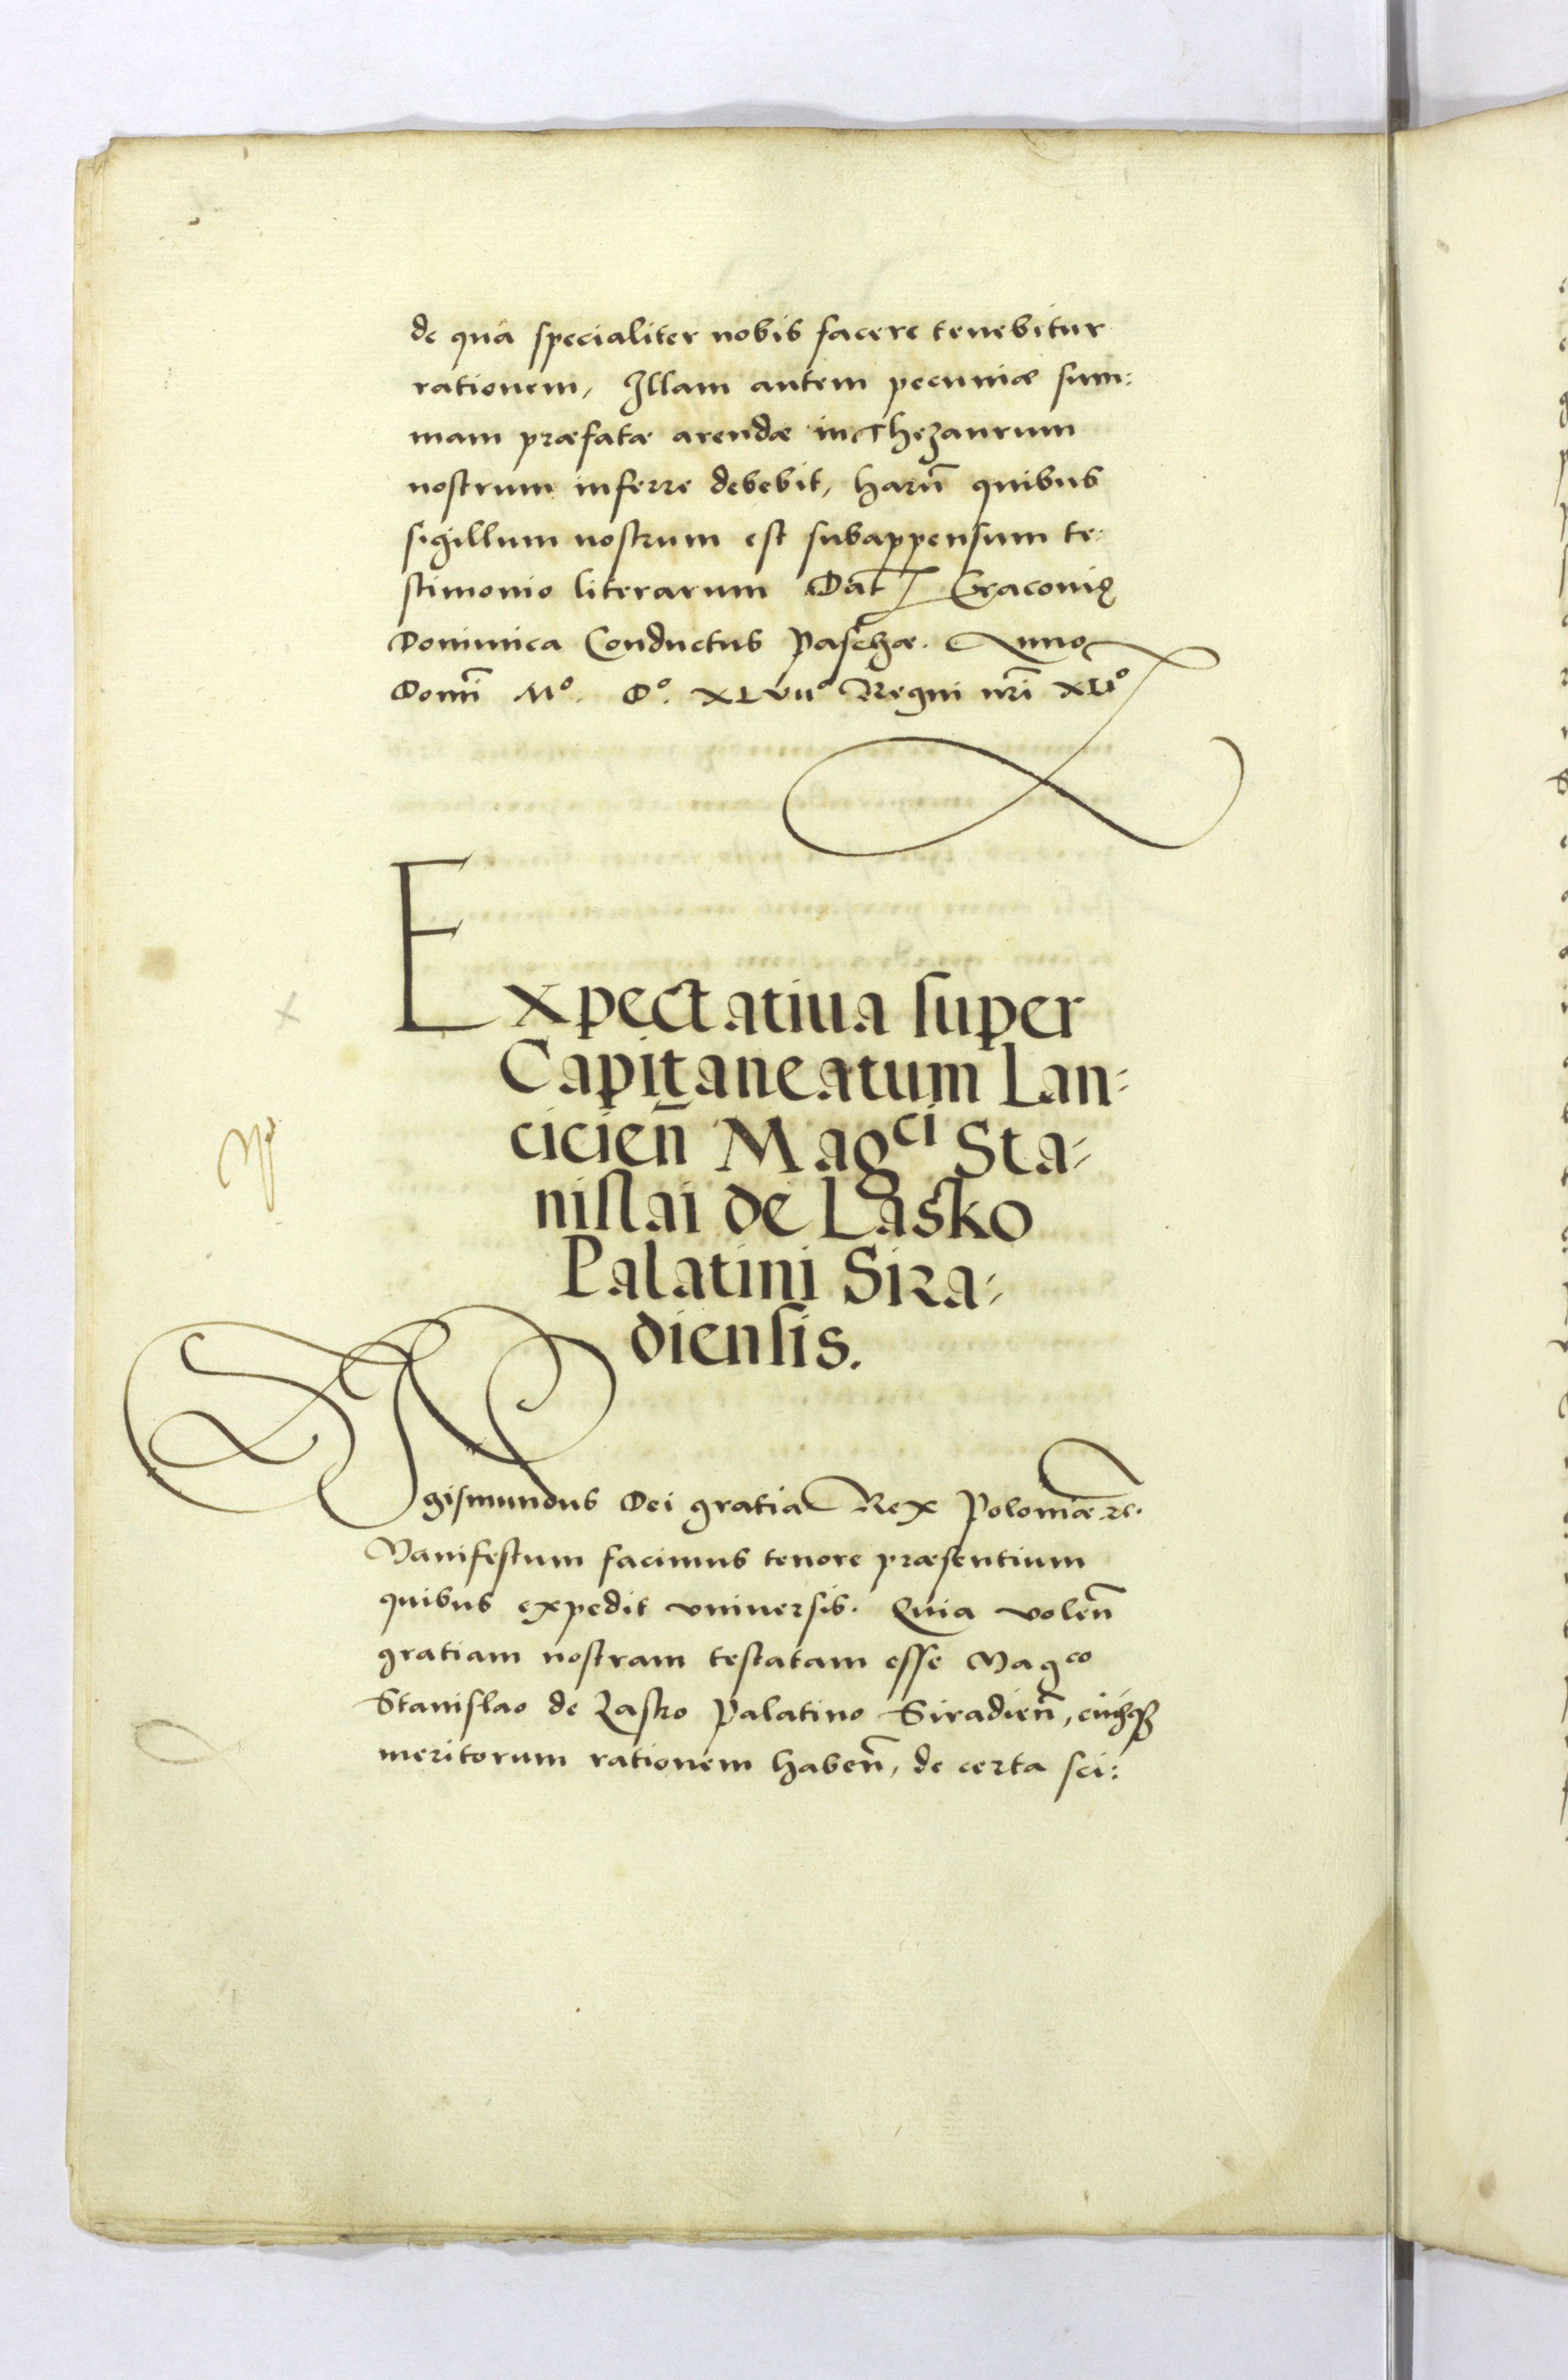 de qua specialiter nobis facere tenebitur
rationem, Illam autem pecuniæ sum:
mam præfatæ arendæ in Thezaurum
nostrum inferre debebit, harū quibus
sigillum nostrum est subappensum te:
stimonio literarum Dat Cracovię
Dominica Conductus Paschæ. Anno
Domī Mº. Dº. XLVIIº Regni nrī XLIº
Expectatiua super
Capitaneatum Lan:
cicień Mag^ci Sta:
nislai de Lasko
Palatini Sira:
diensis.
Sigismundus Dei gratia Rex Poloniæ ꝛc.
Manifestum facimus tenore præsentium
quibus expedit vniuersis. Quia voleñ
gratiam nostram testatam esse Mag^co
Stanislao de Lasko Palatino Siradień,
meritorum rationem habeñ, de certa sci: